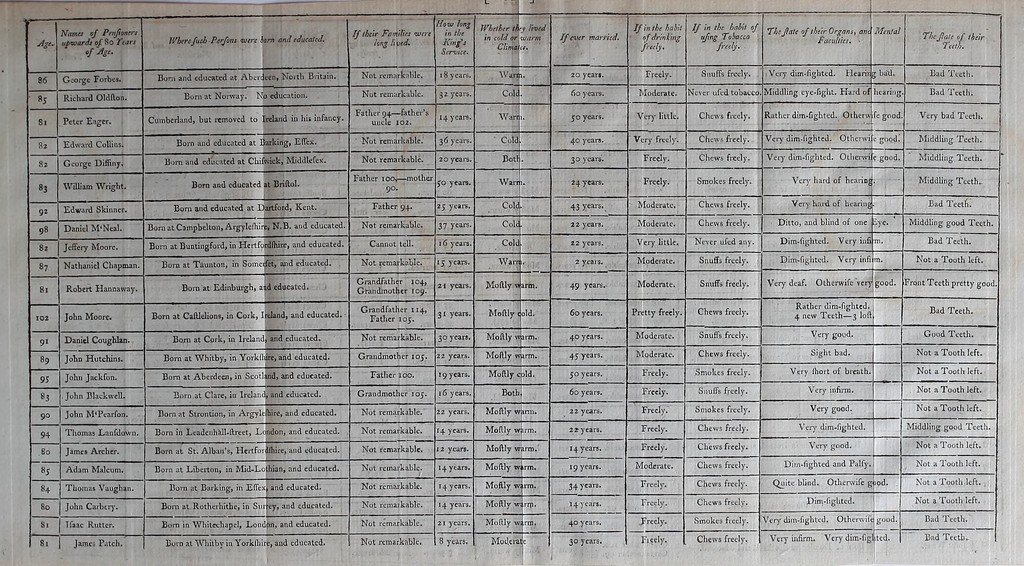 Age.
Names of Penſioners upwards of 80 Years of Age.
Where ſuch Perſons were born and educated.
If their Families were long lived.
How long in the King's Service.
Whether they lived in cold or warm Climates.
If ever married.
If in the habit of drinking freely.
If in the habit of uſing Tobacco freely.
The ſtate of their Organs, and Mental Faculties.
The ſtate of their Teeth.
86 George Forbes. Born and educated at Aberdeen, North Britain. Not remarkable. 18 years. Warm. 20 years. Freely. Snuffs freely. Very dim-ſighted. Hearing bad. Bad Teeth.
85 Richard Oldſton. Born at Norway. No education. Not remarkable. 32 years. Cold. 60 years. Moderate. Never uſed tobacco. Middling eye-ſight. Hard of hearing. Bad Teeth.
81 Peter Eager. Cumberland, but removed to Ireland in his infancy. Father 94—father's uncle 102. 14 years. Warm. 50 years. Very little. Chews freely. Rather dim-ſighted. Otherwiſe good. Very bad Teeth.
82 Edward Collins. Born and educated at Barking, Eſſex. Not remarkable. 36 years. Cold. 40 years. Very freely. Chews freely. Very dim-ſighted. Otherwiſe good. Middling Teeth.
82 George Diffiny. Born and educated at Chiſwick, Middleſex. Not remarkable. 20 years. Both. 30 years. Freely. Chews freely. Very dim-ſighted. Otherwiſe good. Middling Teeth.
83 William Wright. Born and educated at Briſtol. Father 100,—mother 90. 50 years. Warm. 24 years. Freely. Smokes freely. Very hard of hearing. Middling Teeth.
92 Edward Skinner. Born and educated at Dartford, Kent. Father 94. 25 years. Cold. 43 years. Moderate. Chews freely. Very hard of hearing. Bad Teeth.
98 Daniel M'Neal. Born at Campbelton, Argyleſhire, N.B. and educated. Not remarkable. 37 years. Cold. 22 years. Moderate. Chews freely. Ditto, and blind of one Eye. Middling good Teeth.
82 Jeffery Moore. Born at Buntingford, in Hertfordſhire, and educated. Cannot tell. 16 years. Cold. 22 years. Very little. Never uſed any. Dim-ſighted. Very infirm. Bad Teeth.
87 Nathaniel Chapman. Born at Taunton, in Somerſet, and educated. Not remarkable. 15 years. Warm. 2 years. Moderate. Snuffs freely. Dim-ſighted. Very infirm. Not a Tooth left.
81 Robert Hannaway. Born at Edinburgh, and educated. Grandfather 104, Grandmother 109. 21 years. Moſtly warm. 49 years. Moderate. Snuffs freely. Very deaf. Otherwiſe very good. Front Teeth pretty good.
102 John Moore. Born at Caſtlelions, in Cork, Ireland, and educated. Grandfather 114, Father 105. 31 years. Moſtly cold. 60 years. Pretty freely. Chews freely. Rather dim-ſighted. 4 new Teeth—3 loſt. Bad Teeth.
91 Daniel Coughlan. Born at Cork, in Ireland, and educated. Not remarkable. 30 years. Moſtly warm. 40 years. Moderate. Snuffs freely. Very good. Good Teeth.
89 John Hutchins. Born at Whitby, in Yorkſhire, and educated. Grandmother 105. 22 years. Moſtly warm. 45 years. Moderate. Chews freely. Sight bad. Not a Tooth left.
95 John Jackſon. Born at Aberdeen, in Scotland, and educated. Father 100. 19 years. Moſtly cold. 50 years. Freely. Smokes freely. Very ſhort of breath. Not a Tooth left.
83 John Blackwell. Born at Clare, in Ireland, and educated. Grandmother 105. 16 years. Both. 60 years. Freely. Snuffs freely. Very infirm. Not a Tooth left.
90 John M'Pearſon. Born at Strontion, in Argyleſhire, and educated. Not remarkable. 22 years. Moſtly warm. 22 years. Freely. Smokes freely. Very good. Not a Tooth left.
94 Thomas Lanſdown. Born in Leadenhall-ſtreet, London, and educated. Not remarkable. 14 years. Moſtly warm. 22 years. Freely. Chews freely. Very dim-ſighted. Middling good Teeth.
80 James Archer. Born at St. Alban's, Hertfordſhire, and educated. Not remarkable. 12 years. Moſtly warm. 14 years. Freely. Chews freely. Very good. Not a Tooth left.
85 Adam Malcum. Born at Liberton, in Mid-Lothian, and educated. Not remarkable. 14 years. Moſtly warm. 19 years. Moderate. Chews freely. Dim-ſighted and Palſy. Not a Tooth left.
84 Thomas Vaughan. Born at Barking, in Eſſex, and educated. Not remarkable. 14 years. Moſtly warm. 34 years. Freely. Chews freely. Quite blind. Otherwiſe good. Not a Tooth left.
80 John Carbery. Born at Rotherhithe, in Surrey, and educated. Not remarkable. 14 years. Moſtly warm. 14 years. Freely. Chews freely. Dim-ſighted. Not a Tooth left.
81 Iſaac Rutter. Born in Whitechapel, London, and educated. Not remarkable. 21 years. Moſtly warm. 40 years. Freely. Smokes freely. Very dim-ſighted. Otherwiſe good. Bad Teeth.
81 James Patch. Born at Whitby in Yorkſhire, and educated. Not remarkable. 8 years. Moderate 30 years. Freely. Chews freely. Very infirm. Very dim-ſighted. Bad Teeth.